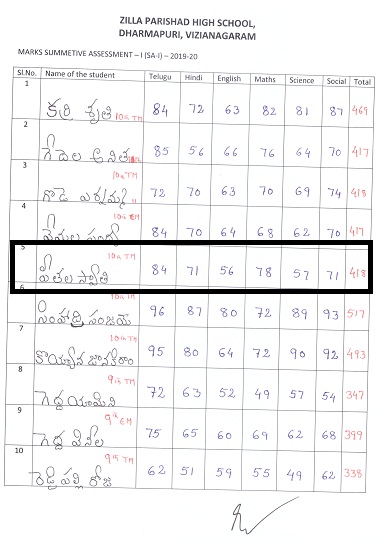 ZILLA PARISHAD HIGH SCHOOL,
DHARMAPURI, VIZIANAGARAM
MARKS SUMMETIVE ASSESSMENT – I (SA-I) – 2019-20
Sl.No. Name of the student Telugu Hindi English Maths Science Social Total
1 కర్రి శృతి 10th TM 84 72 63 82 81 87 469
2 గెదెల అనిత 85 56 66 76 64 70 417
3 10th TM 72 70 63 70 69 74 418
4 10th EM 84 70 64 68 62 70 417
5 పీతల స్వాతి 10th TM 84 71 56 78 57 71 418
6 సింహాద్రి సంజయ్ 10th TM 96 87 80 72 89 93 517
7 కొయ్యాన జానకిరాం 10th TM 95 80 64 72 90 92 493
8 గెద్ద యామిని 9th TM 72 63 52 49 57 54 347
9 గెద్ద వినీల 9th EM 75 65 60 69 62 68 399
10 రెడ్డిపల్లి రోజా 9th TM 62 51 59 55 49 62 338